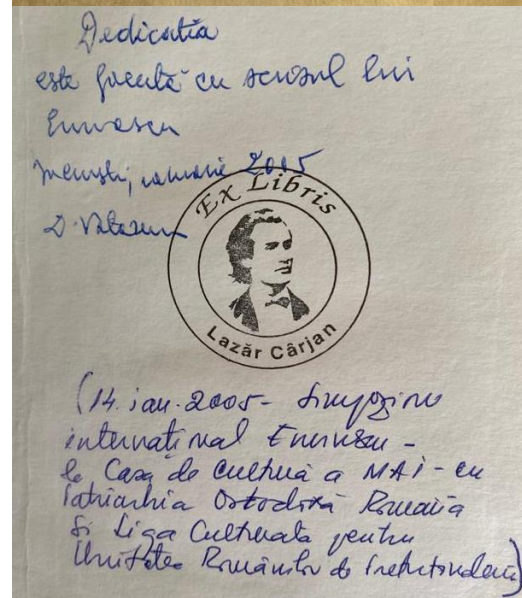 Dedicatia
este facută cu scrisul lui
Eminescu
ianuarie 2005
Ex Libris
Lazăr Cârjan
(14. ian. 2005 - Simpozion
internațional Eminescu -
la Casa de Cultură a MAI - cu
Patriarhia Ortodoxă Română
și Liga Culturală pentru
Unitatea Românilor de Pretutindeni)